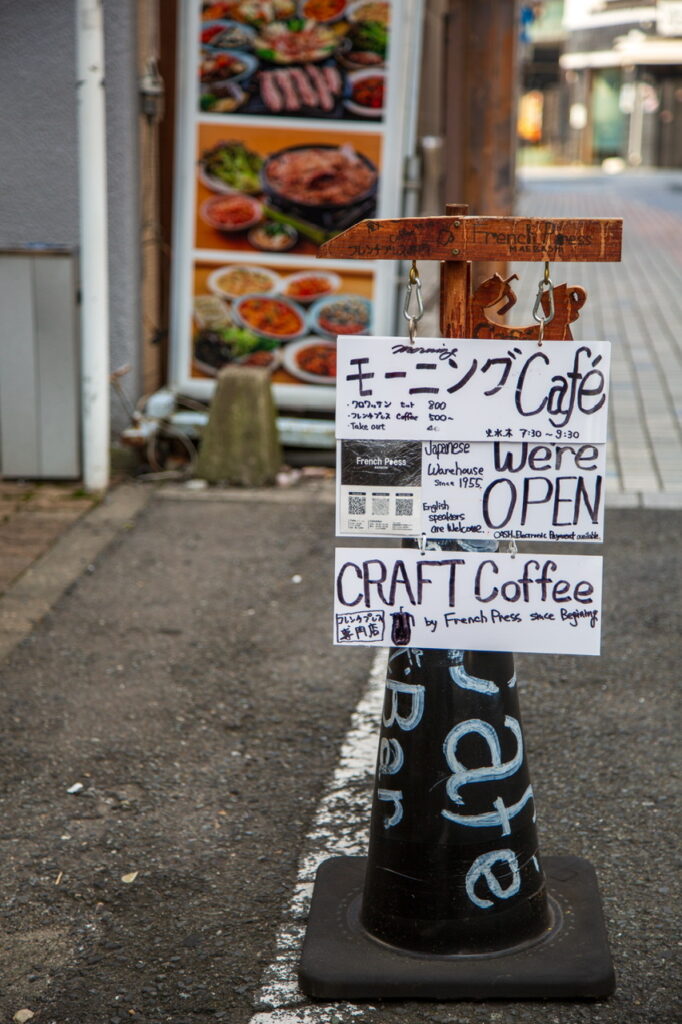 French Press
MAEBASHI
フレンチプレス専門店
morning
モーニング Café
・クロワッサン set 800
・フレンチプレス Coffee 500~
・Take out
火水木 7:30~9:30
French Press
Japanese
Warehouse
Since 1955.
English
speakers
are Welcome.
Were
OPEN
CASH, Electronic Payment available.
CRAFT Coffee
フレンチプレス
専門店
by French Press since Begining
Bar
Café